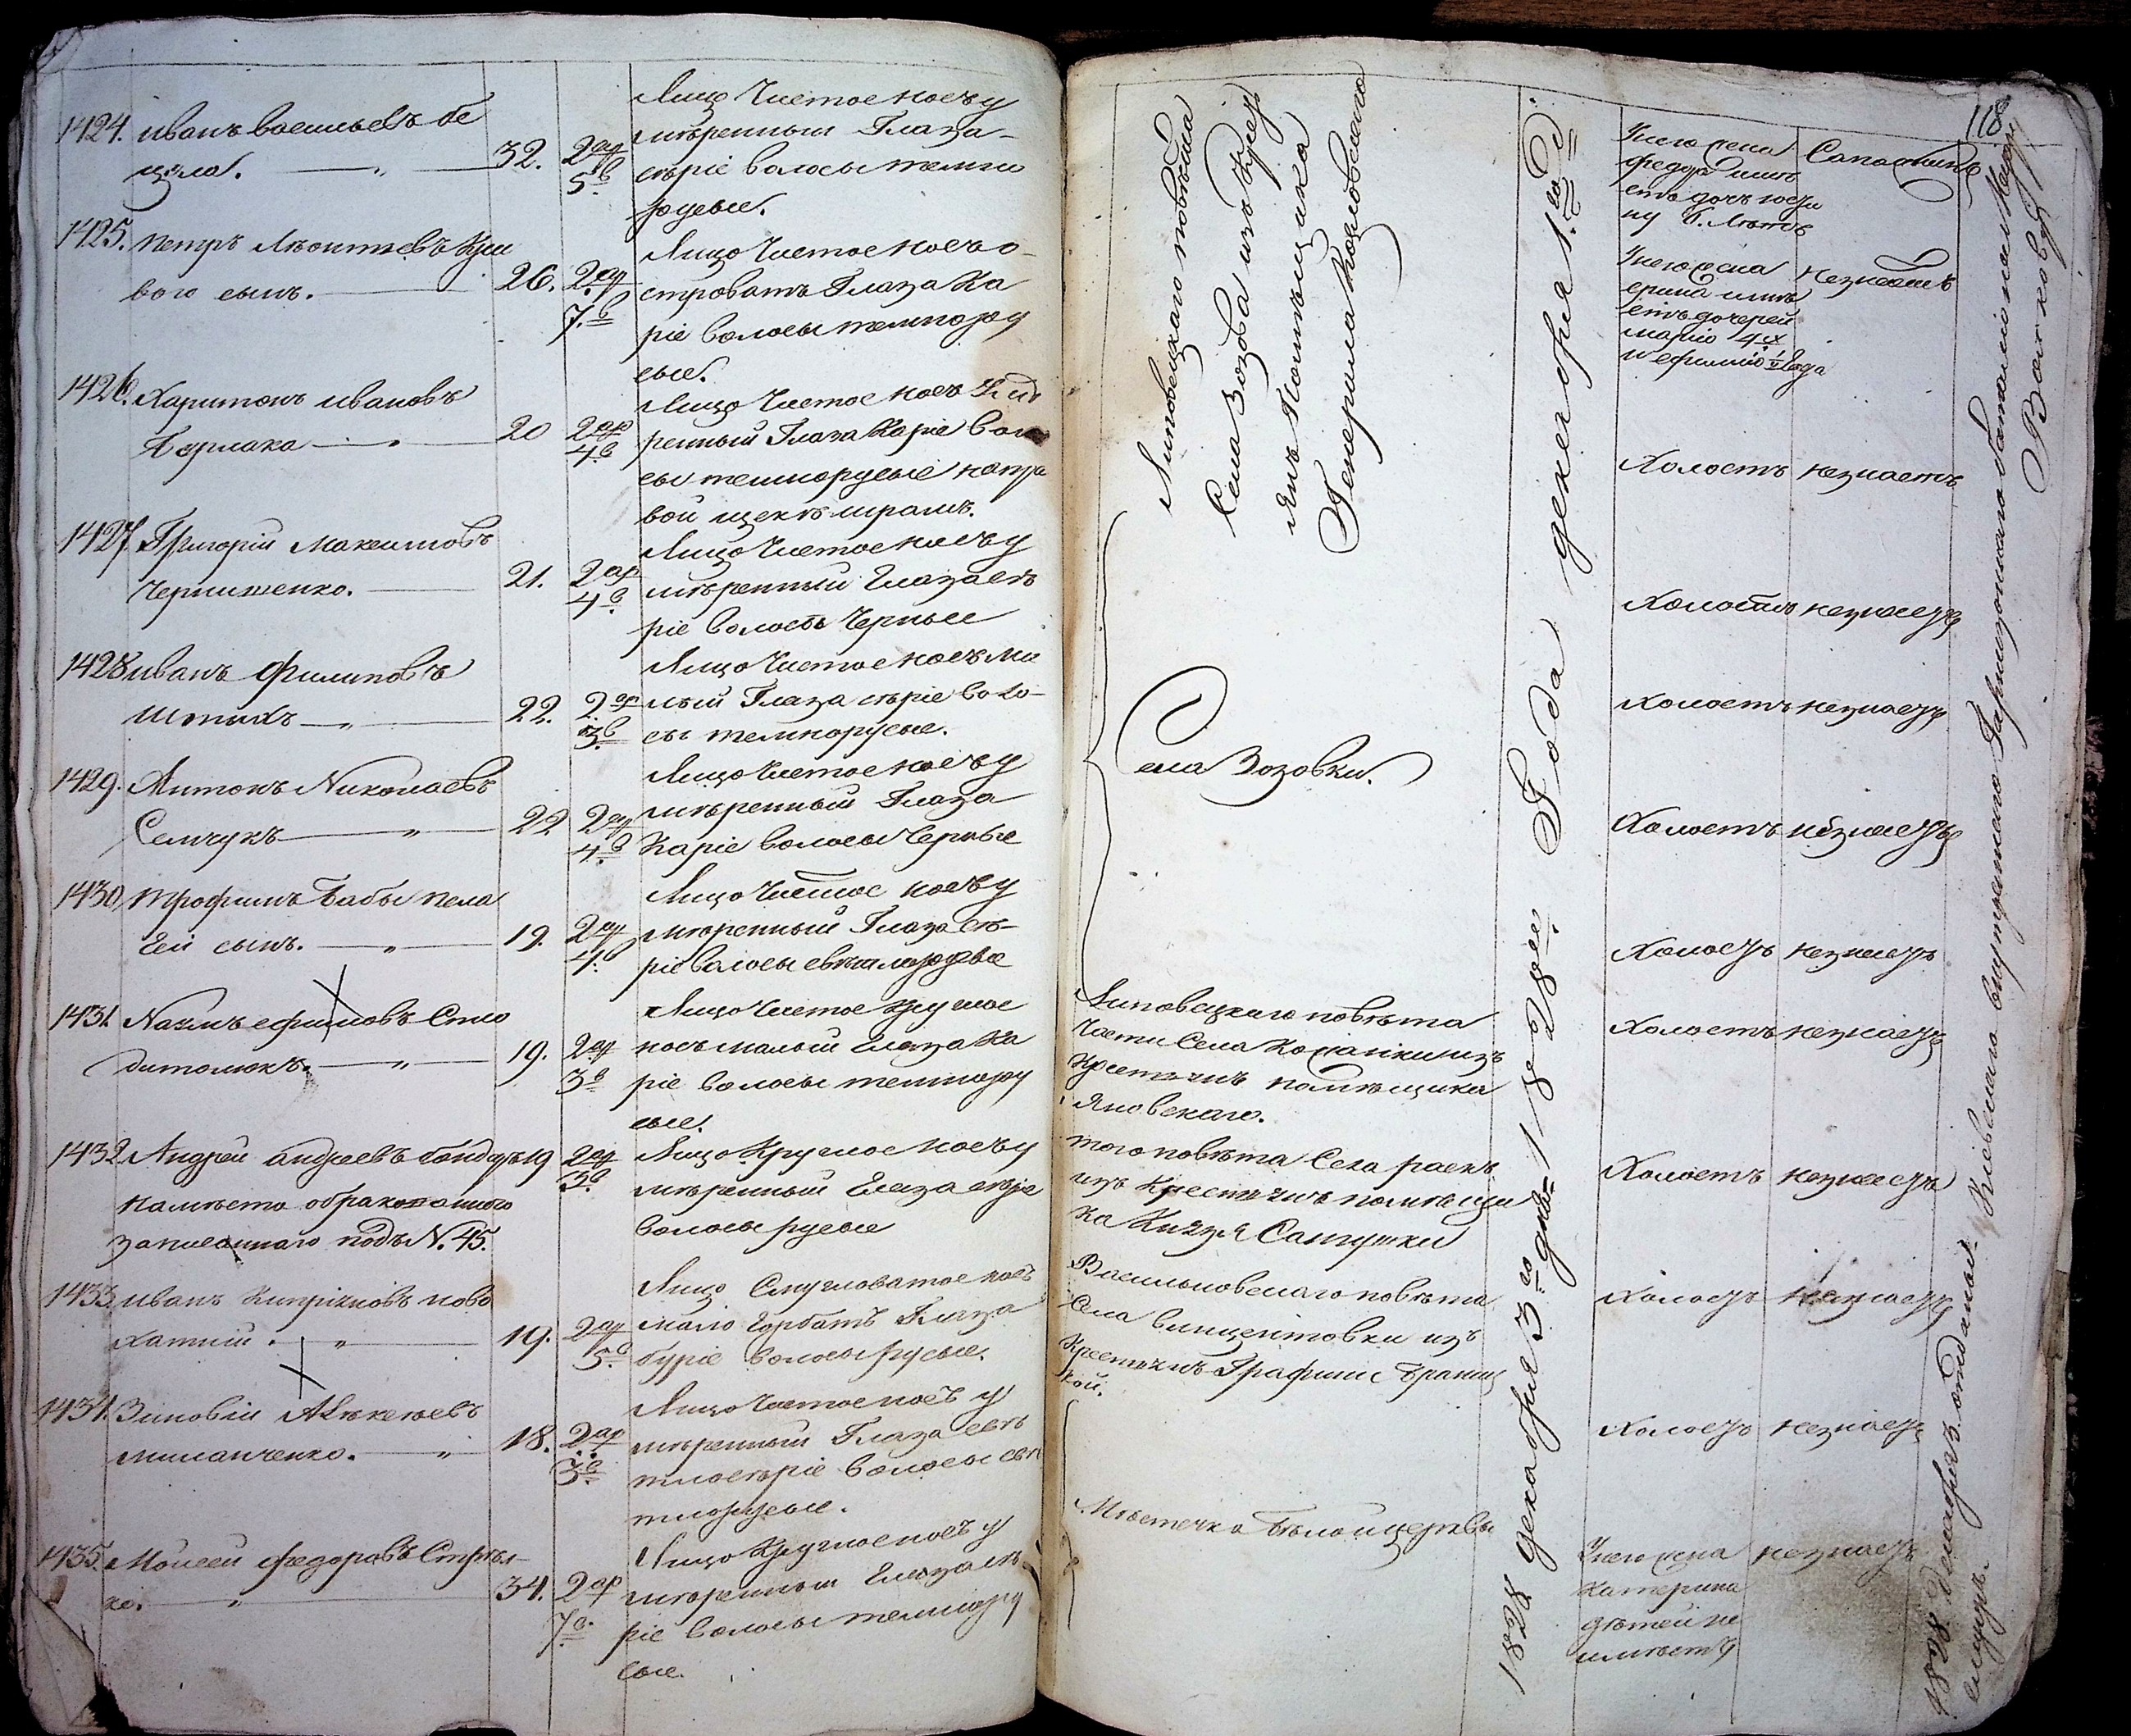 1424. Иванъ Васильевъ Бе
цюла.
32.
2 ар
5 в
Лице чистое носъ у
мѣренный Глаза
сѣріе волосы темно
русые.
1425. Петръ Лѣонтіевъ
вого сынъ.
26.
2 ар
7. в
Лицо чистое носъ о
строватъ Глаза Ка
ріе волосы темнору
сые.
1426. Харитонъ Ивановъ
Бурлака
20
2 ар
4 в
Лицо чистое носъ
ренный Глаза Каріе воло
сы темнорусые напра
вой щекѣ шрамъ.
1427. Григорій Максимовъ
Чернишенко.
21.
2 ар
4 в
Лицо чистое носъ у
мѣренный Глаза сѣ
ріе волосы Черные
1428 Иванъ Филиповъ
22.
2. ар
3. в
Лицо чистое носъ ма
лый Глаза сѣріе воло
сы темнорусые.
1429. Антонъ Николаевъ
Семчукъ
22
2 ар
4. в
Лицо чистое носъ у
мѣренный Глаза
Каріе волосы Черные
1430. Трофимъ Бабы Пела
геи сынъ.
19.
2 ар
4. в
Лицо чистое носъ у
мѣренный Глаза сѣ
ріе волосы свѣтлорусые
1431. Наумъ Ефимовъ
19.
2 ар
3 в
Лицо чистое круглое
носъ малый Глаза Ка
ріе волосы темнору
сые.
1432. Андрей Андреевъ Бондарь 19
на мѣсто обракованного
записаннаго подъ N. 45.
2 ар
3. в
Лицо Круглое носъ у
мѣренный Глаза сѣріе
волосы русые
1433. Иванъ Кипріяновъ Ново
хатній.
19.
2 ар
5. в
Лицо Смугловатое носъ
мало Горбатъ Глаза
буріе волосы русые.
1434. Зиновій Алѣксѣевъ
Миланченко.
18.
2 ар
3. в
Лицо чистое носъ у
мѣренный Глаза свѣ
тлосѣріе волосы свѣ
тлорусые.
1435. Мойсей Федоровъ Стрѣл-
ко.
34.
2 ар
7 в.
Лицо Круглое носъ у
мѣренный Глаза сѣ
ріе волосы темнору
сые.
118
Липовецкаго повѣта
Села Зозова изъ Крест
янъ Помѣщика
Генерала
Села Зозовки.
Липовецкаго повѣта
части Села изъ
Крестянъ помѣщика
Яновскаго.
того повѣта Села
изъ Крестянъ помѣщи
ка Князя Сангушки
Васильковскаго повѣта
Села Винцентовки изъ
Крестянъ Графини Браниц
кой.
Мѣстечка Бѣлой церквы
1828 декабря 3 го дня 1828 го Года декабря 1. го д
У него жена
Федора имѣ
етъ дочь
ну 6. Лѣтъ
У него жена
ирина имѣ
етъ дочерей
марію 4 х
и ефимію ½ года
незнаетъ
Холостъ незнаетъ
Холостъ незнаетъ
Холостъ незнаетъ
Холостъ незнаетъ
Холостъ незнаетъ
Холостъ незнаетъ
Холостъ незнаетъ
Холостъ незнаетъ
Холостъ незнаетъ
У него жена незнаетъ
Катерина
дѣтей не
имѣетъ
1828 Кіевскаго внутренаго Гарнизоннаго баталіона
Волковъ